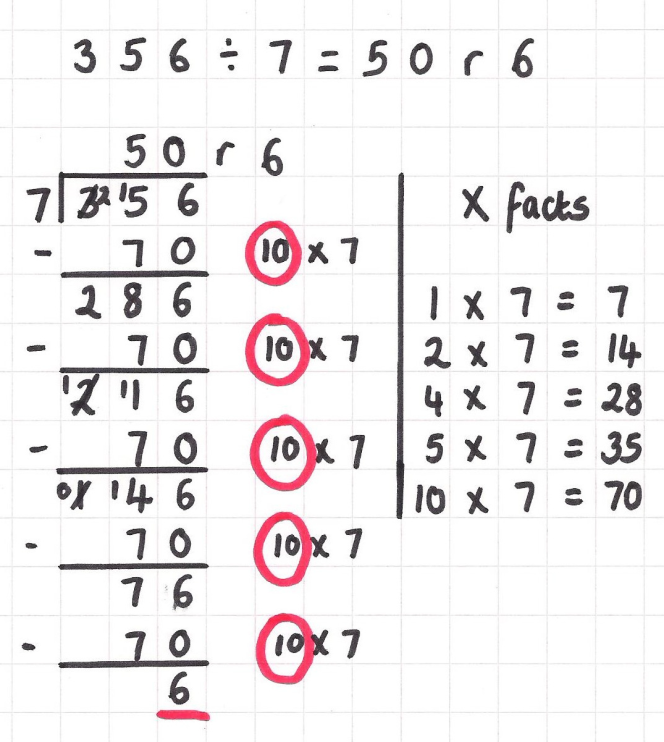 356 ÷ 7 = 50 r 6
50 r 6
7 3 2 1 5 6
- 70 10 x 7
286
- 70 10 x 7
1 2 1 1 6
- 70 10 x 7
0 1 1 4 6
- 70 10 x 7
76
- 70 10 x 7
6
x facts
1 x 7 = 7
2 x 7 = 14
4 x 7 = 28
5 x 7 = 35
10 x 7 = 70